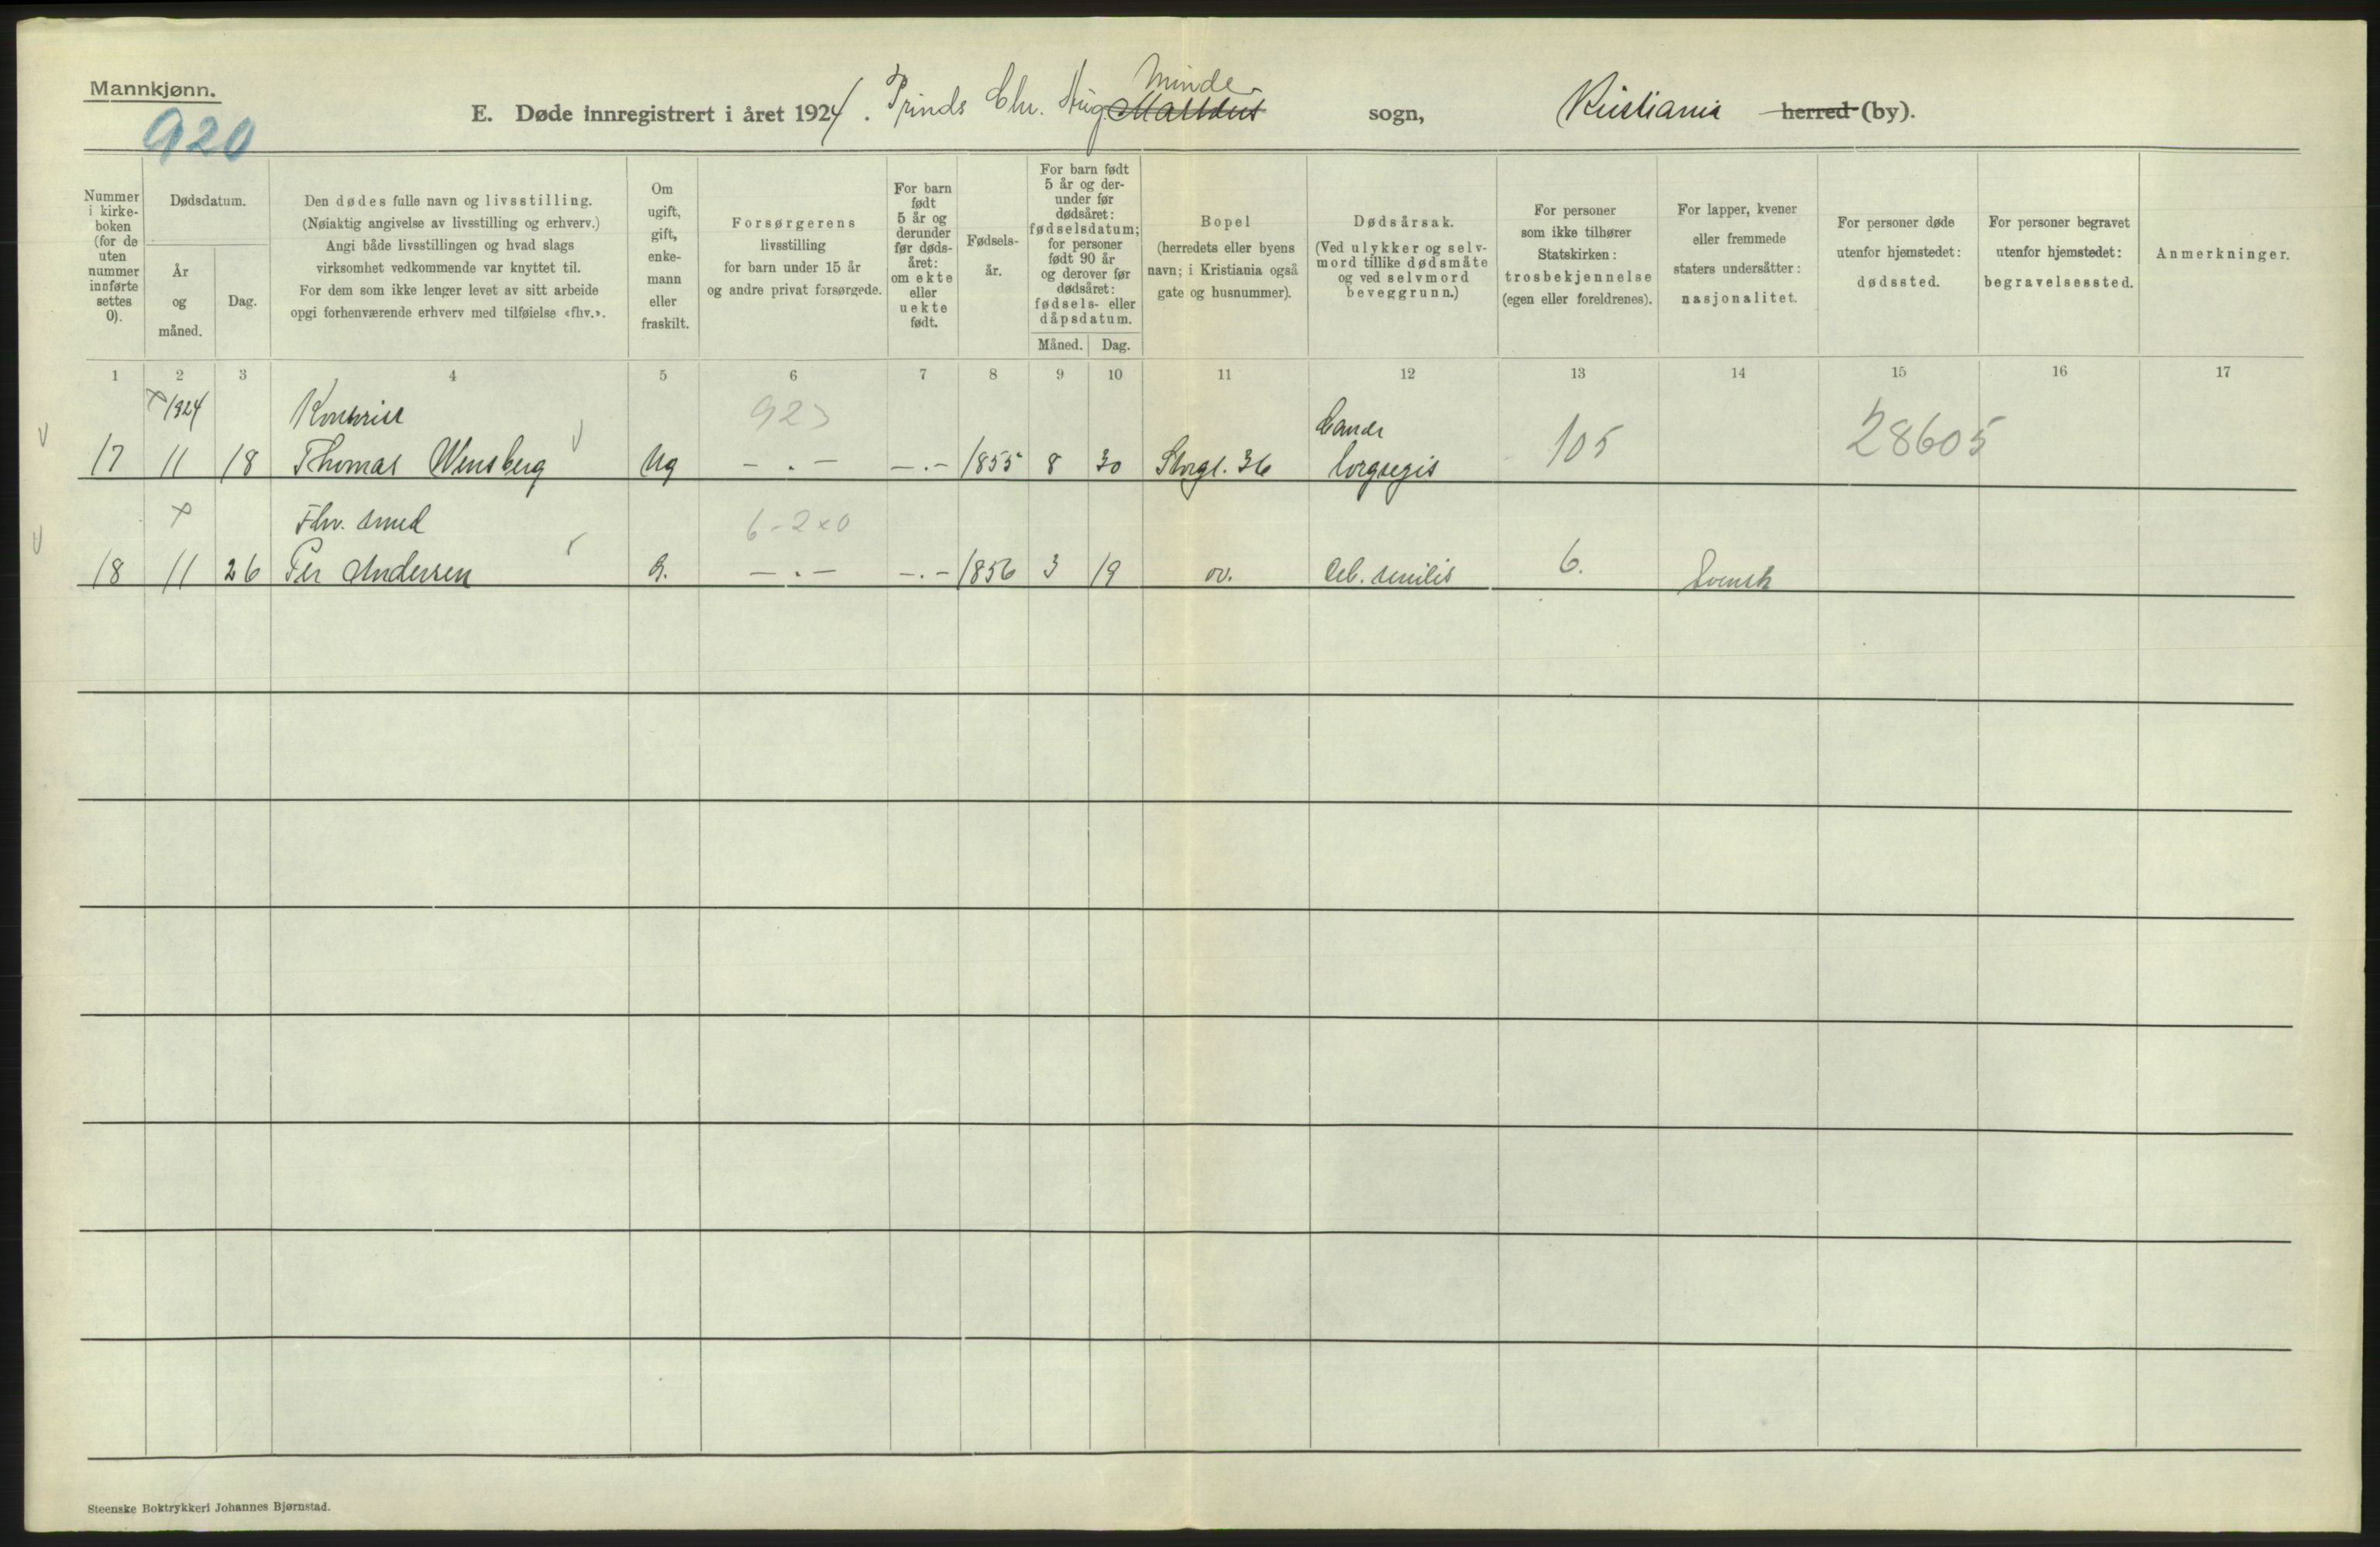 Mannkjønn.
920
E. Døde innregistrert i året 1924. Prinds Chr. Aug. Minde sogn, Kristiania herred (by).
Nummer i kirke-boken (for de uten nummer innførte settes 0).
Dødsdatum.
År og måned.
Dag.
Den dødes fulle navn og livsstilling.
(Nøiaktig angivelse av livsstilling og erhverv.)
Angi både livsstillingen og hvad slags
virksomhet vedkommende var knyttet til.
For dem som ikke lenger levet av sitt arbeide
opgi forhenværende erhverv med tilføielse «fhv.».
Om ugift, gift, enke-mann eller fraskilt.
Forsørgerens
livsstilling
for barn under 15 år
og andre privat forsørgede.
For barn født 5 år og derunder før døds-året: om ekte eller uekte født.
Fødsels-år.
For barn født 5 år og der-under før dødsåret: fødselsdatum; for personer født 90 år og derover før dødsåret: fødsels- eller dåpsdatum.
Måned. Dag.
Bopel
(herredets eller byens
navn; i Kristiania også
gate og husnummer).
Dødsårsak.
(Ved ulykker og selv-
mord tillike dødsmåte
og ved selvmord
beveggrunn.)
For personer
som ikke tilhører
Statskirken:
trosbekjennelse
(egen eller foreldrenes).
For lapper, kvener
eller fremmede
staters undersåtter:
nasjonalitet.
For personer døde
utenfor hjemstedet:
dødssted.
For personer begravet
utenfor hjemstedet:
begravelsessted.
Anmerkninger.
1 2 3 4 5 6 7 8 9 10 11 12 13 14 15 16 17
1924 923
17 11 18 Thomas Wensberg Ug - . - - . - 1855 8 30 Storgt. 36 105 28605
Fhv. smed 6-2x0
18 11 26 Per Andersen G. - . - - . - 1856 3 19 Deb. senilis 6. Svensk
Steenske Boktrykkeri Johannes Bjørnstad.